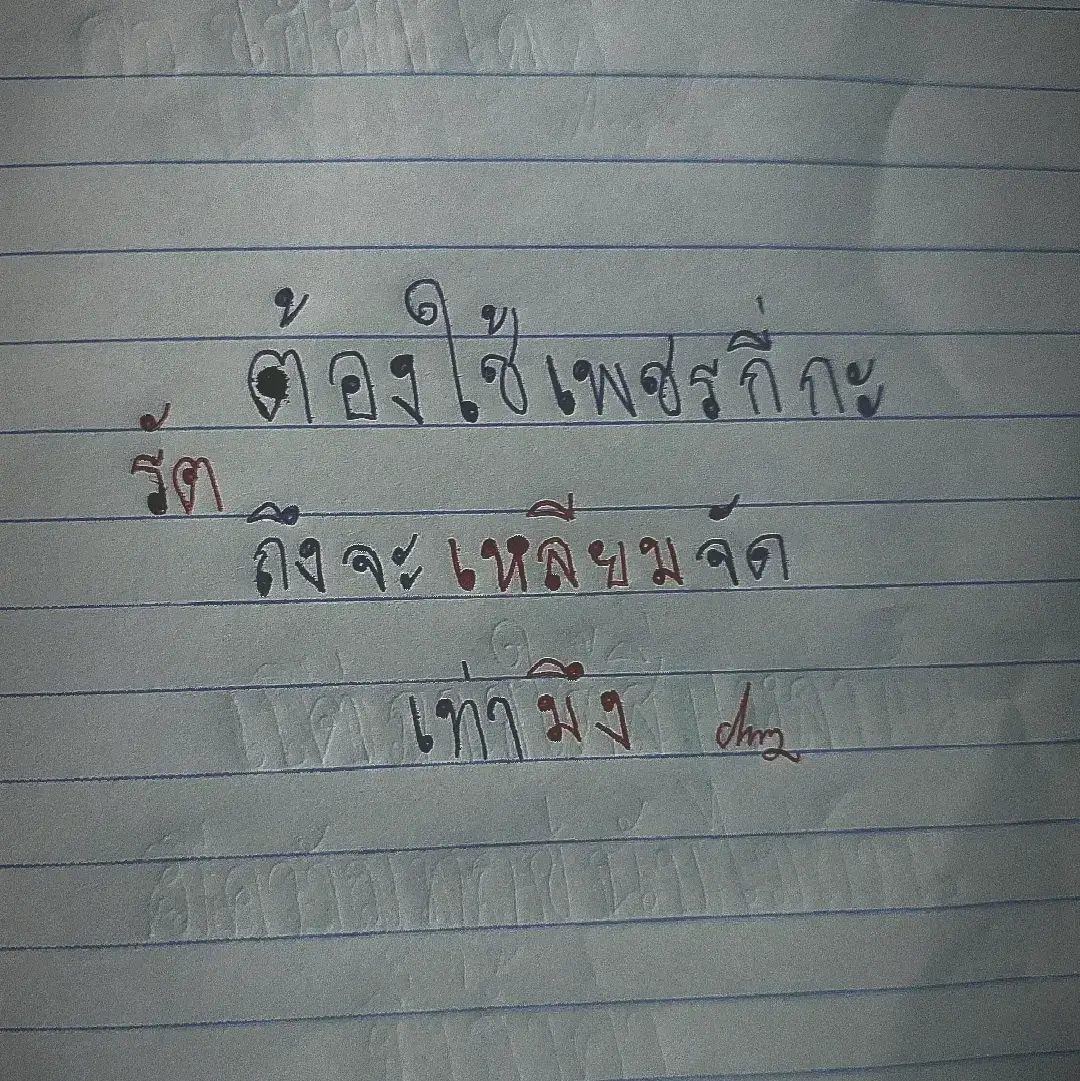 ต้องใช้เพชรกี่กะ
รัต
ถึงจะเหลี่ยมจัด
เท่ามึง